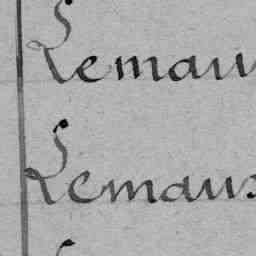 Lemau
Lemaux